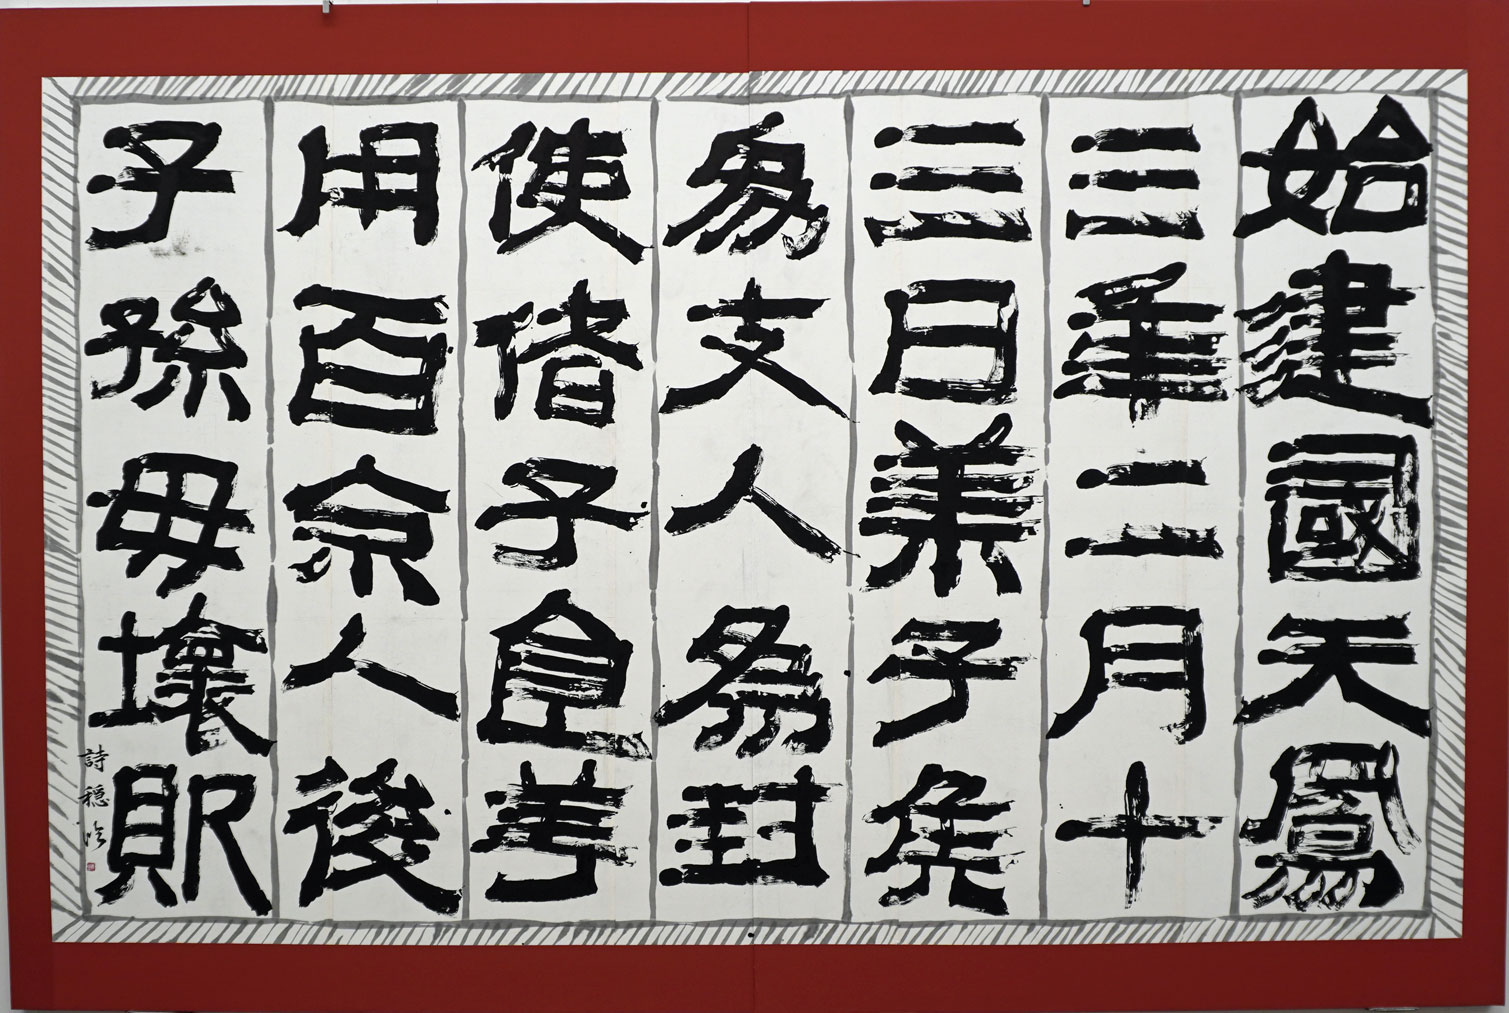 始建國天鳳
三年二月十
三日萊子侯
為支人為封
使偖子食等
用百余人後
子孫毋壞敗
詩穏臨